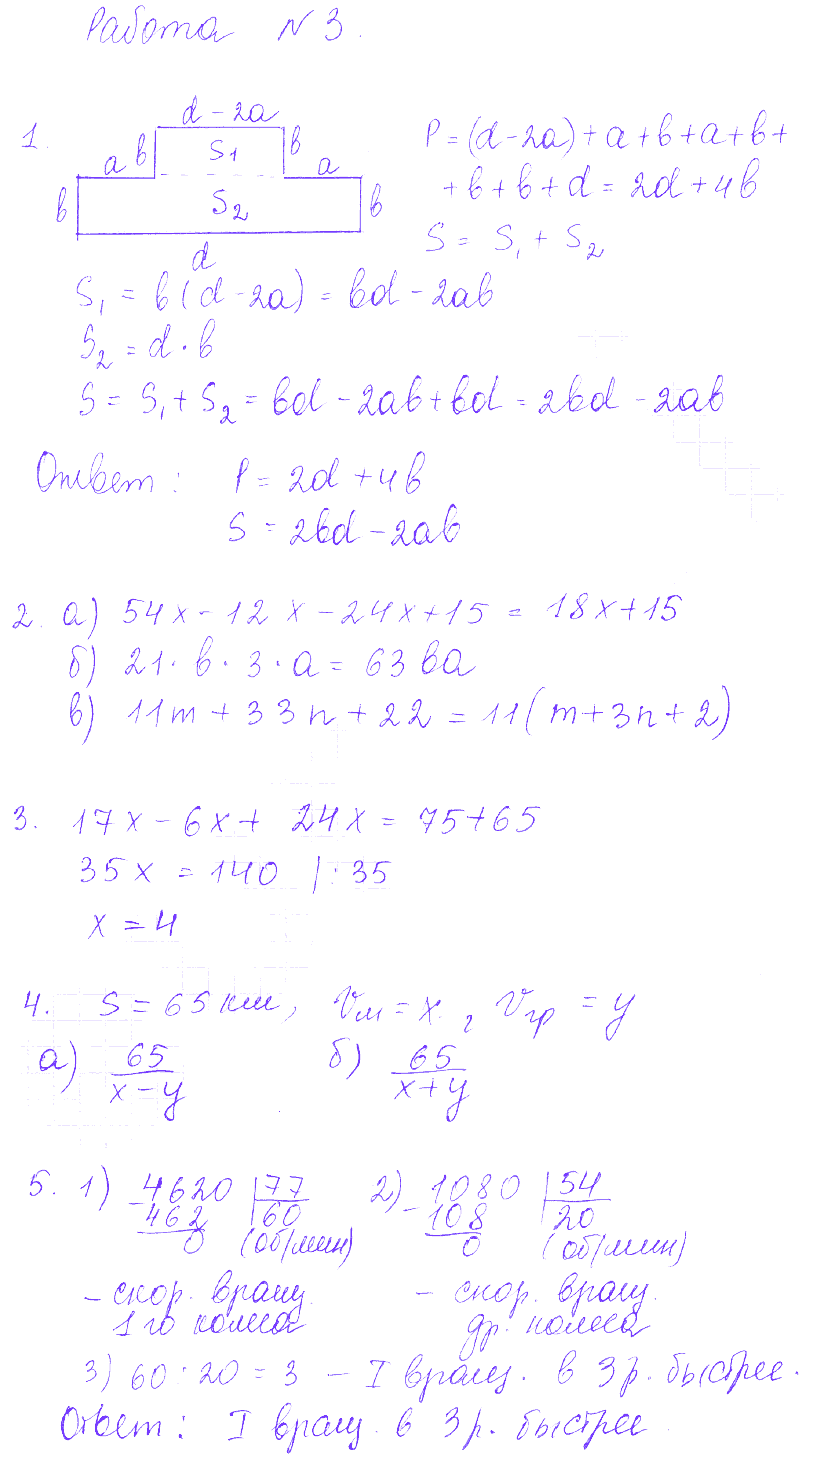 Работа № 3.
1.
d - 2a
a b S1 b a
b S2 b
d
P = (d-2a) + a + b + a + b +
+ b + b + d = 2d + 4b
S = S₁ + S₂
S₁ = b(d-2a) = bd - 2ab
S₂ = d · b
S = S₁ + S₂ = bd - 2ab + bd = 2bd - 2ab
Ответ: P = 2d + 4b
S = 2bd - 2ab
2. а) 54x - 12x - 24x + 15 = 18x + 15
б) 21 · b · 3 · a = 63 ba
в) 11m + 33n + 22 = 11(m + 3n + 2)
3. 17x - 6x + 24x = 75 + 65
35x = 140 | : 35
x = 4
4. S = 65 км, Vм = x, Vгр = y
а) 65/(x-y) б) 65/(x+y)
5. 1) 4620 | 77 2) 1080 | 54
- 462 60 - 108 20
0 (об/мин) 0 (об/мин)
- скор. вращ. - скор. вращ.
1го колеса др. колеса
3) 60 : 20 = 3 - I вращ. в 3 р. быстрее.
Ответ: I вращ. в 3 р. быстрее